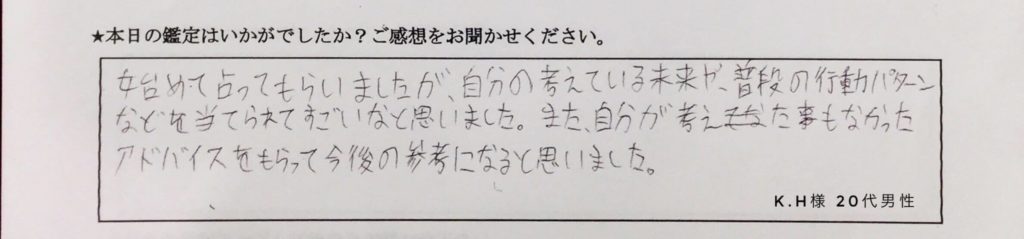 ★本日の鑑定はいかがでしたか？ご感想をお聞かせください。
始めて占ってもらいましたが、自分の考えている未来や、普段の行動パターン
などを当てられてすごいなと思いました。また、自分が考えた事もなかった
アドバイスをもらって今後の参考になると思いました。
K.H様 20代男性